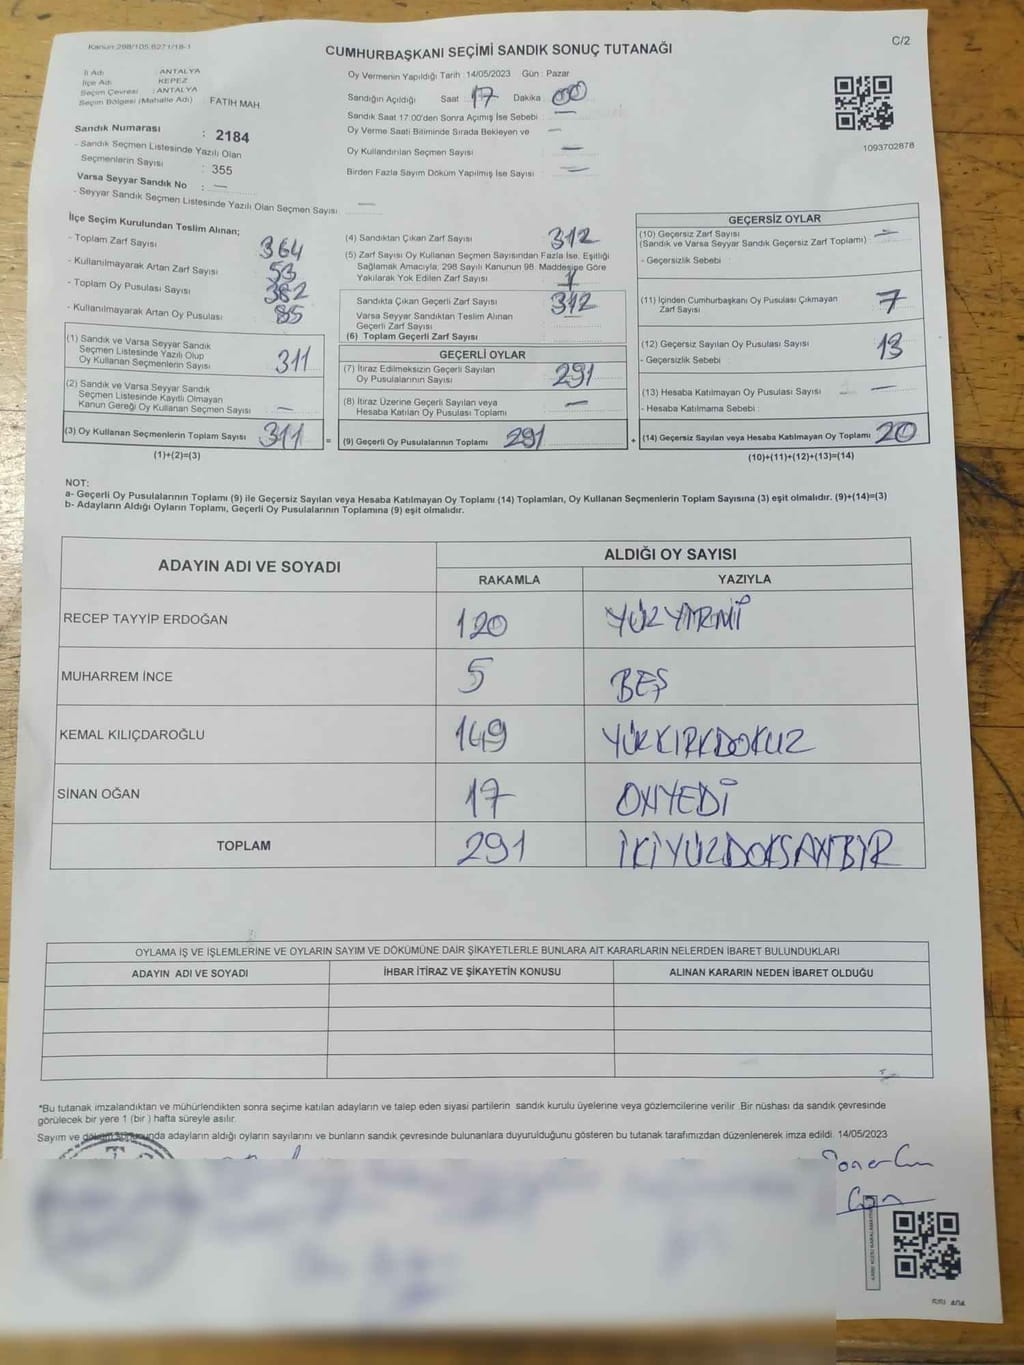 Kanun:298/105.6271/18-1
C/2
CUMHURBAŞKANI SEÇİMİ SANDIK SONUÇ TUTANAĞI
İl Adı : ANTALYA
İlçe Adı : KEPEZ
Seçim Çevresi : ANTALYA
Seçim Bölgesi (Mahalle Adı) FATİH MAH.
Sandık Numarası : 2184
- Sandık Seçmen Listesinde Yazılı Olan
Seçmenlerin Sayısı : 355
Varsa Seyyar Sandık No : —
- Seyyar Sandık Seçmen Listesinde Yazılı Olan Seçmen Sayısı —
Oy Vermenin Yapıldığı Tarih :14/05/2023 Gün : Pazar
Sandığın Açıldığı Saat 17 Dakika 00
Sandık Saat 17:00'den Sonra Açımış İse Sebebi —
Oy Verme Saati Bitiminde Sırada Bekleyen ve —
Oy Kullandırılan Seçmen Sayısı —
Birden Fazla Sayım Döküm Yapılmış İse Sayısı —
1093702878
İlçe Seçim Kurulundan Teslim Alınan;
- Toplam Zarf Sayısı 364
- Kullanılmayarak Artan Zarf Sayısı 53
- Toplam Oy Pusulası Sayısı 382
- Kullanılmayarak Artan Oy Pusulası 85
(1) Sandık ve Varsa Seyyar Sandık
Seçmen Listesinde Yazılı Olup
Oy Kullanan Seçmenlerin Sayısı 311
(2) Sandık ve Varsa Seyyar Sandık
Seçmen Listesinde Kayıtlı Olmayan
Kanun Gereği Oy Kullanan Seçmen Sayısı —
(3) Oy Kullanan Seçmenlerin Toplam Sayısı 311
(1)+(2)=(3)
(4) Sandıktan Çıkan Zarf Sayısı 312
(5) Zarf Sayısı Oy Kullanan Seçmen Sayısından Fazla İse, Eşitliği
Sağlamak Amacıyla, 298 Sayılı Kanunun 98. Maddesine Göre
Yakılarak Yok Edilen Zarf Sayısı 1
Sandıkta Çıkan Geçerli Zarf Sayısı 312
Varsa Seyyar Sandıktan Teslim Alınan
Geçerli Zarf Sayısı
(6) Toplam Geçerli Zarf Sayısı
GEÇERLİ OYLAR
(7) İtiraz Edilmeksizin Geçerli Sayılan
Oy Pusulalarının Sayısı 291
(8) İtiraz Üzerine Geçerli Sayılan veya
Hesaba Katılan Oy Pusulası Toplamı —
= (9) Geçerli Oy Pusulalarının Toplamı 291
GEÇERSİZ OYLAR
(10) Geçersiz Zarf Sayısı —
(Sandık ve Varsa Seyyar Sandık Geçersiz Zarf Toplamı) :
- Geçersizlik Sebebi :
(11) İçinden Cumhurbaşkanı Oy Pusulası Çıkmayan
Zarf Sayısı 7
(12) Geçersiz Sayılan Oy Pusulası Sayısı 13
- Geçersizlik Sebebi :
(13) Hesaba Katılmayan Oy Pusulası Sayısı —
- Hesaba Katılmama Sebebi :
+ (14) Geçersiz Sayılan veya Hesaba Katılmayan Oy Toplamı 20
(10)+(11)+(12)+(13)=(14)
NOT:
a- Geçerli Oy Pusulalarının Toplamı (9) ile Geçersiz Sayılan veya Hesaba Katılmayan Oy Toplamı (14) Toplamları, Oy Kullanan Seçmenlerin Toplam Sayısına (3) eşit olmalıdır. (9)+(14)=(3)
b- Adayların Aldığı Oyların Toplamı, Geçerli Oy Pusulalarının Toplamına (9) eşit olmalıdır.
ADAYIN ADI VE SOYADI ALDIĞI OY SAYISI
RAKAMLA YAZIYLA
RECEP TAYYİP ERDOĞAN 120 YÜZYİRMİ
MUHARREM İNCE 5 BEŞ
KEMAL KILIÇDAROĞLU 149 YÜZKIRKDOKUZ
SİNAN OĞAN 17 ONYEDİ
TOPLAM 291 İKİYÜZDOKSANBİR
OYLAMA İŞ VE İŞLEMLERİNE VE OYLARIN SAYIM VE DÖKÜMÜNE DAİR ŞİKAYETLERLE BUNLARA AİT KARARLARIN NELERDEN İBARET BULUNDUKLARI
ADAYIN ADI VE SOYADI İHBAR İTİRAZ VE ŞİKAYETİN KONUSU ALINAN KARARIN NEDEN İBARET OLDUĞU
*Bu tutanak imzalandıktan ve mühürlendikten sonra seçime katılan adayların ve talep eden siyasi partilerin sandık kurulu üyelerine veya gözlemcilerine verilir. Bir nüshası da sandık çevresinde
görülecek bir yere 1 (bir ) hafta süreyle asılır.
Sayım ve döküm sonucunda adayların aldığı oyların sayılarını ve bunların sandık çevresinde bulunanlara duyurulduğunu gösteren bu tutanak tarafımızdan düzenlenerek imza edildi. 14/05/2023